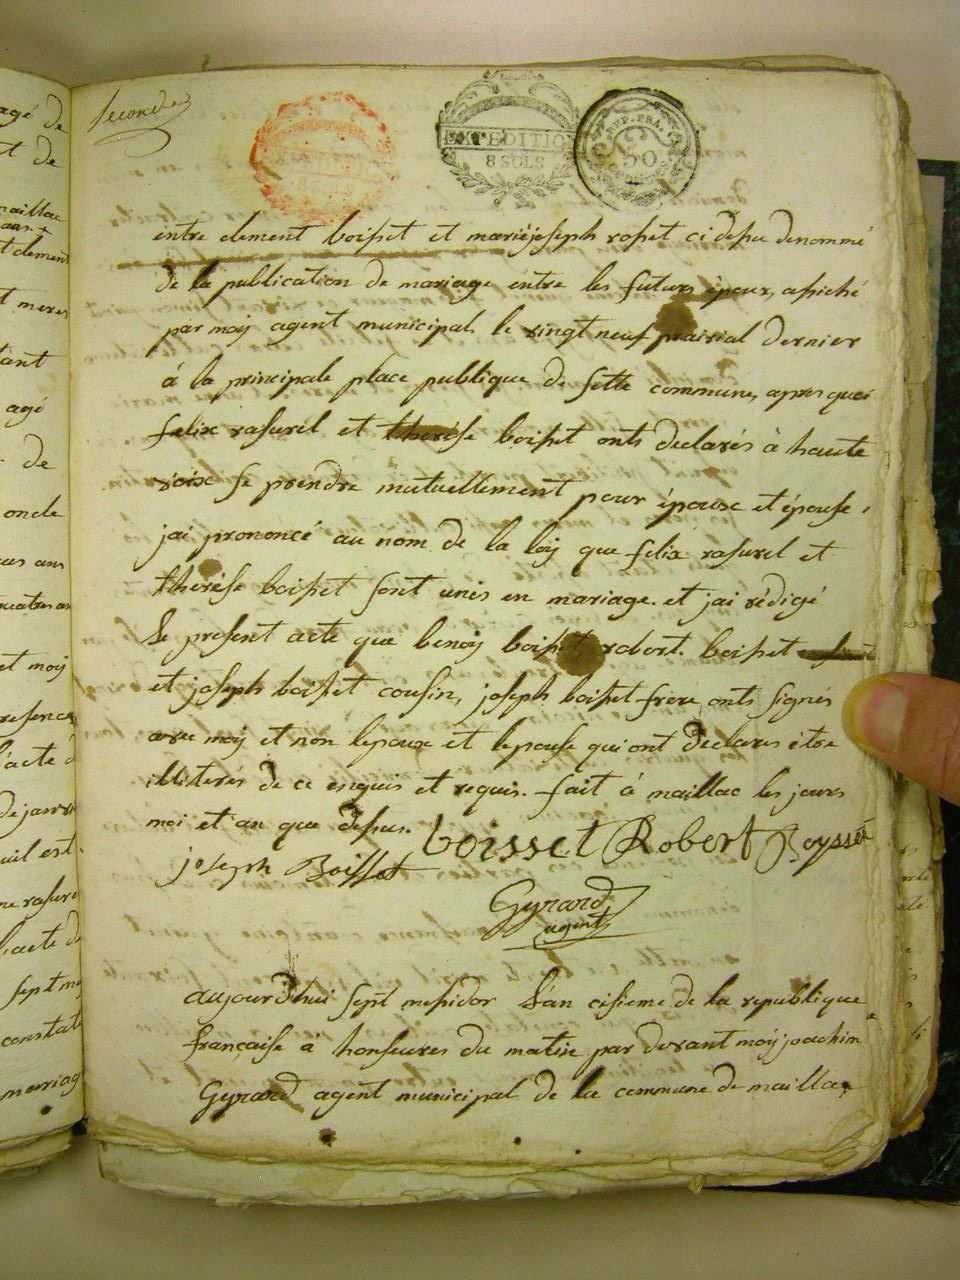 seconde
EXPEDITION
8 SOLS
REP. FRA.
50
centimes
entre clement boisset et marie joseph rosset ci depu denommé
de la publication de mariage entre les futurs époux, afiché
par moy agent municipal le vingt neuf prairial dernier
á la principale place publique de sette commune, apres quoi
felix rasurel et therése boisset onts declarés à haute
voix se prendre mutuellement pour époux et épouse,
jai prononcé au nom de la loy que felix rasurel et
therése boisset sont unis en mariage. et jai rédigé
le present acte que benoy boisset robert. boisset
et joseph boisset cousin, joseph boisset frere onts signés
avec moy et non lepoux et lepouse qui ont declares être
illiterés de ce enquis et requis. fait á maillac les jours
moi et an que depus. boisset Robert Boysset
joseph Boisset
Gyrard
agent
aujourdhui sept messidor l'an cisieme de la republique
française á honseures du matin par devant moy joachim
Gyrard agent municipal de la commune de maillac
agé de
et de
maillac
ans
et clement
et meres
agé
de
oncle
ans
et moy
presence
l'acte
constate
mariage